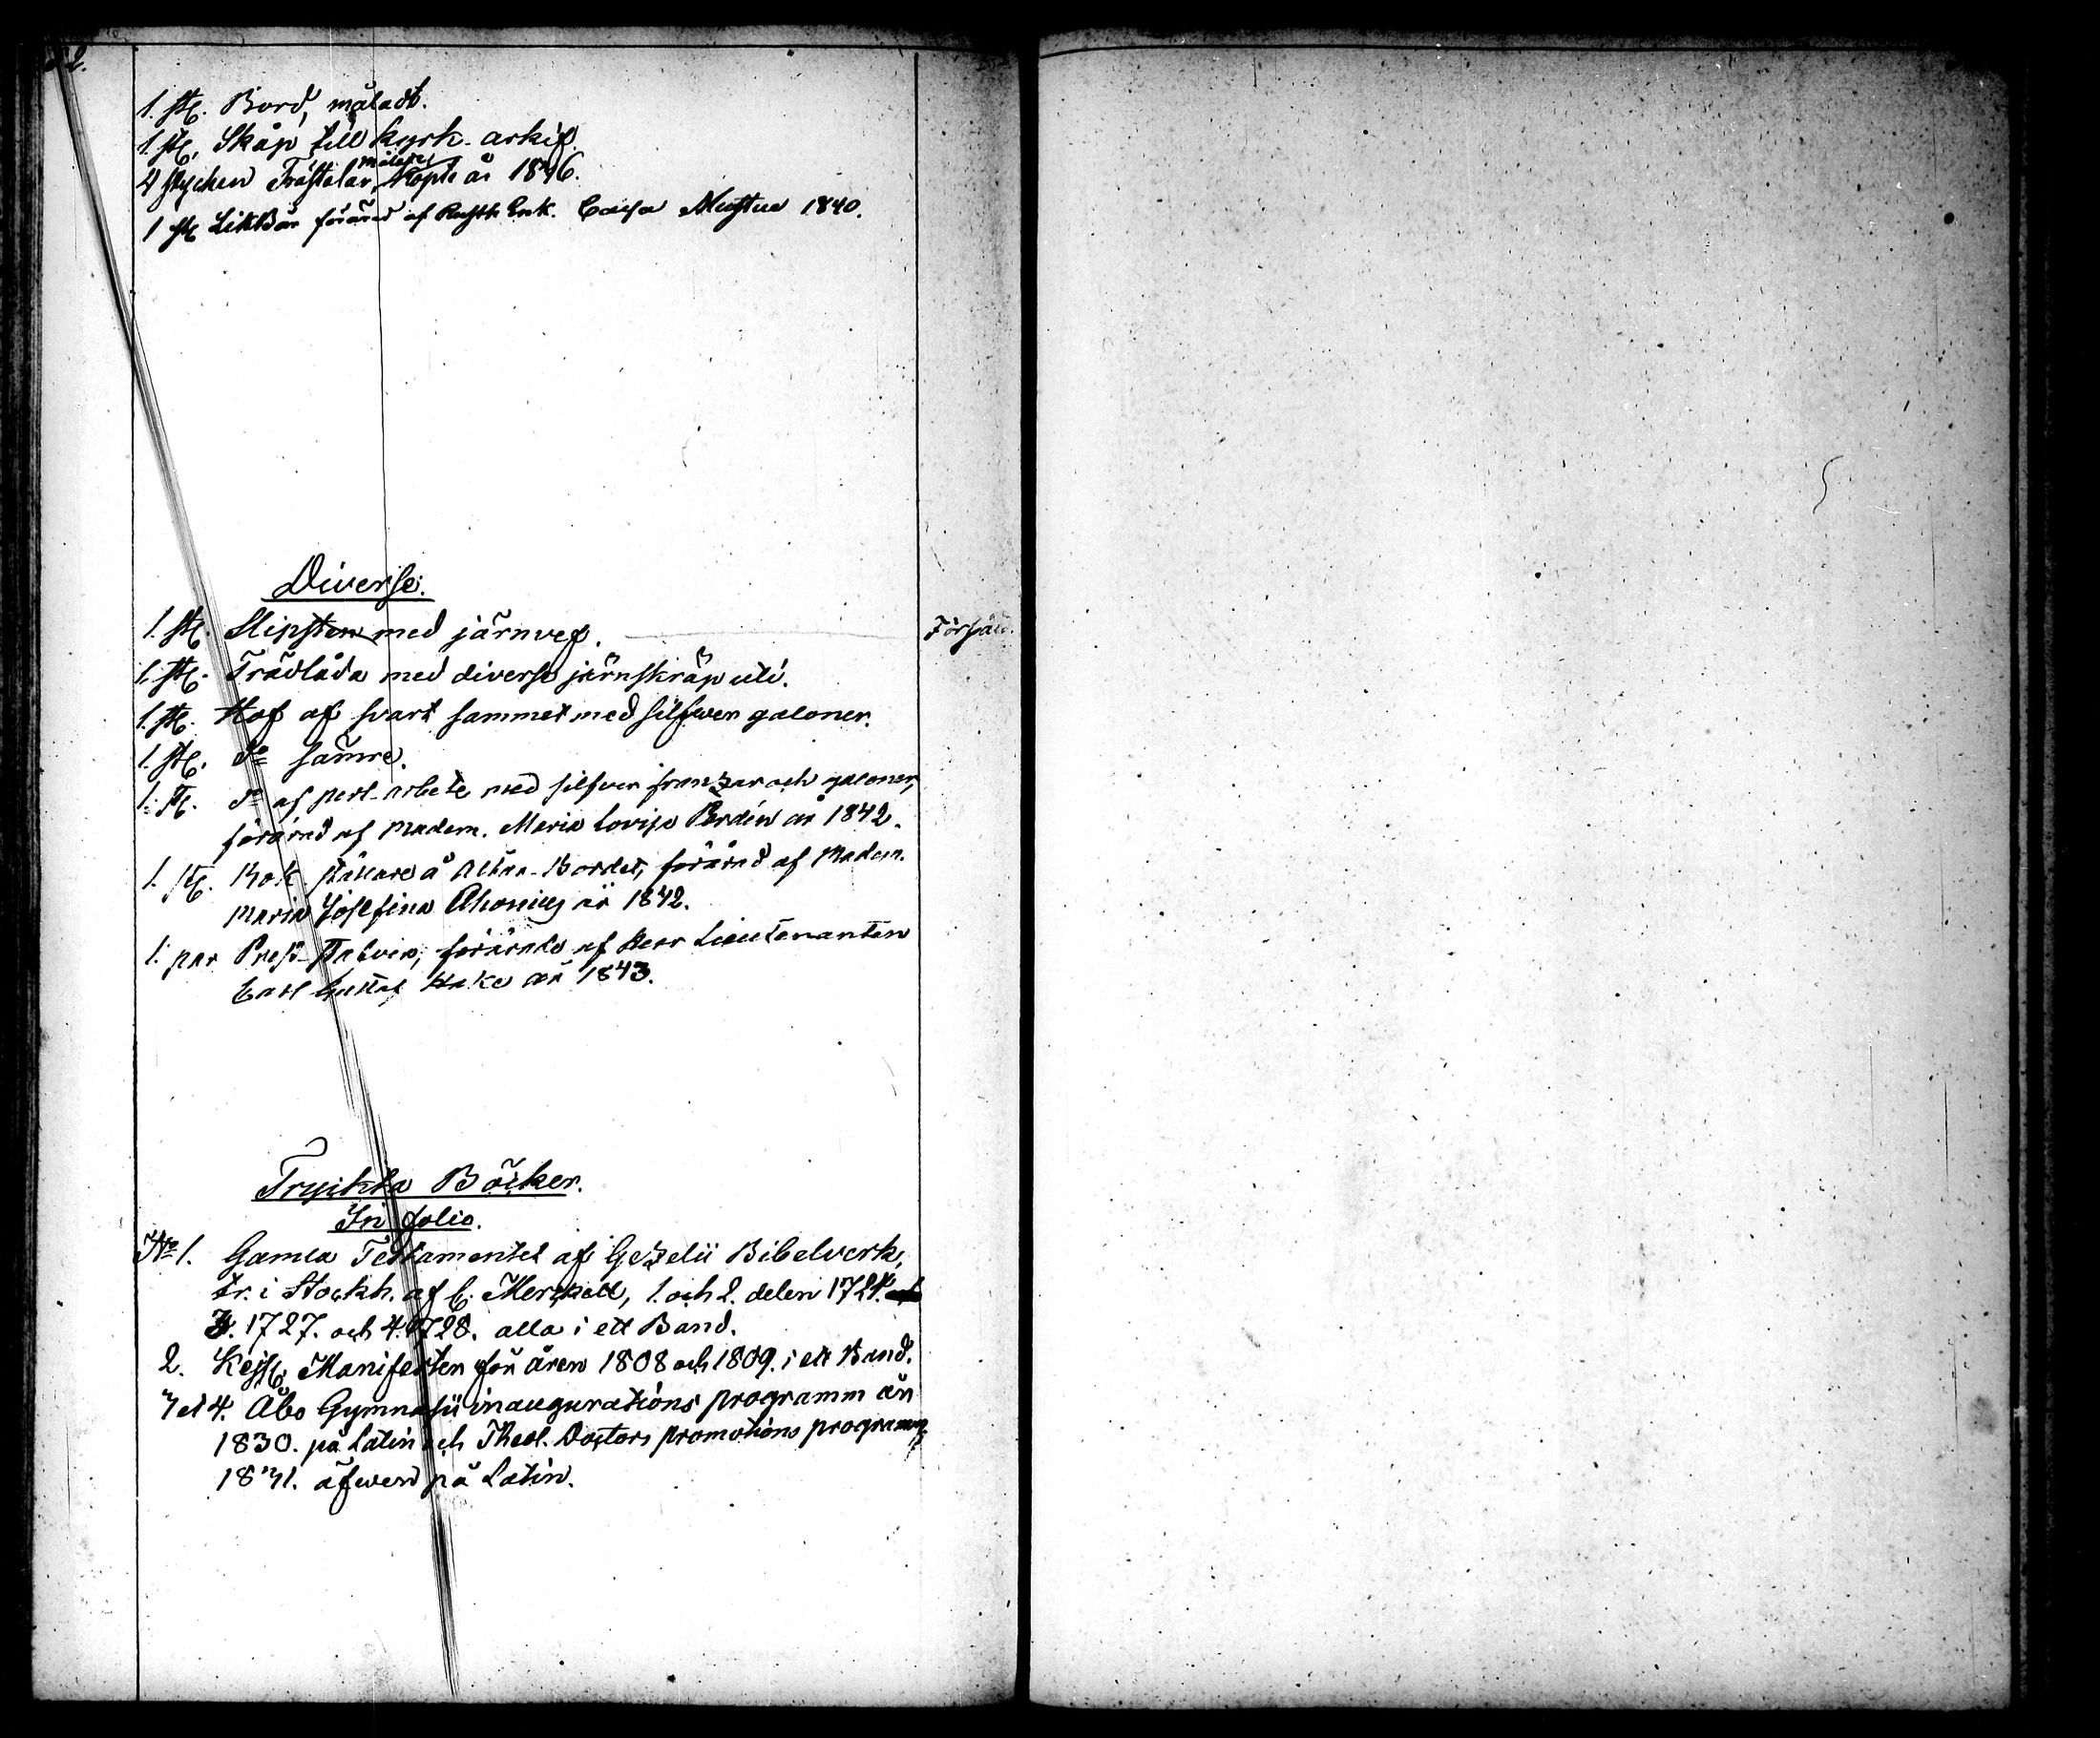 2.
1. st. Bord, måladt.
1. st. Skåp till kyrk-arkif.
4 stycken Trästolar, målade, köpte år 1846.
1 st LikBår förärad af Rusth. Enk. Cajsa 1840.
Diverse.
1. st. Slipsten med järnvef. Försåld.
1. st. Trädlåda med diverse järnskräp uti.
1. st. Håf af svart sammet med silfwer galoner.
1. st. d:o sämre.
1. st. d:o af perl-arbete med silfver franzar och galoner,
förärad af Madem. Maria Lovisa år 1842.
1. st. Bok ställare å Altar-Bordet, förärad af Madem.
Maria Josefina år 1842.
1. par förärade af Herr Lieutenanten
Carl Gustaf Hake år 1843.
Tryckta Böcker.
In folio.
N:o 1. Gamla Testamentet af Gezelii Bibelverk,
tr. i Stockh. af C. Merckell, 1. och 2. delen 1724.
3. 1727. och 4. 1728. alla i ett Band.
2. Kejs. Manifester för åren 1808 och 1809. i ett Band.
3 et 4. Åbo Gymnasii inaugurations programm år
1830. på Latin och Theol. Doctors promotions programm
1831. äfwen på Latin.